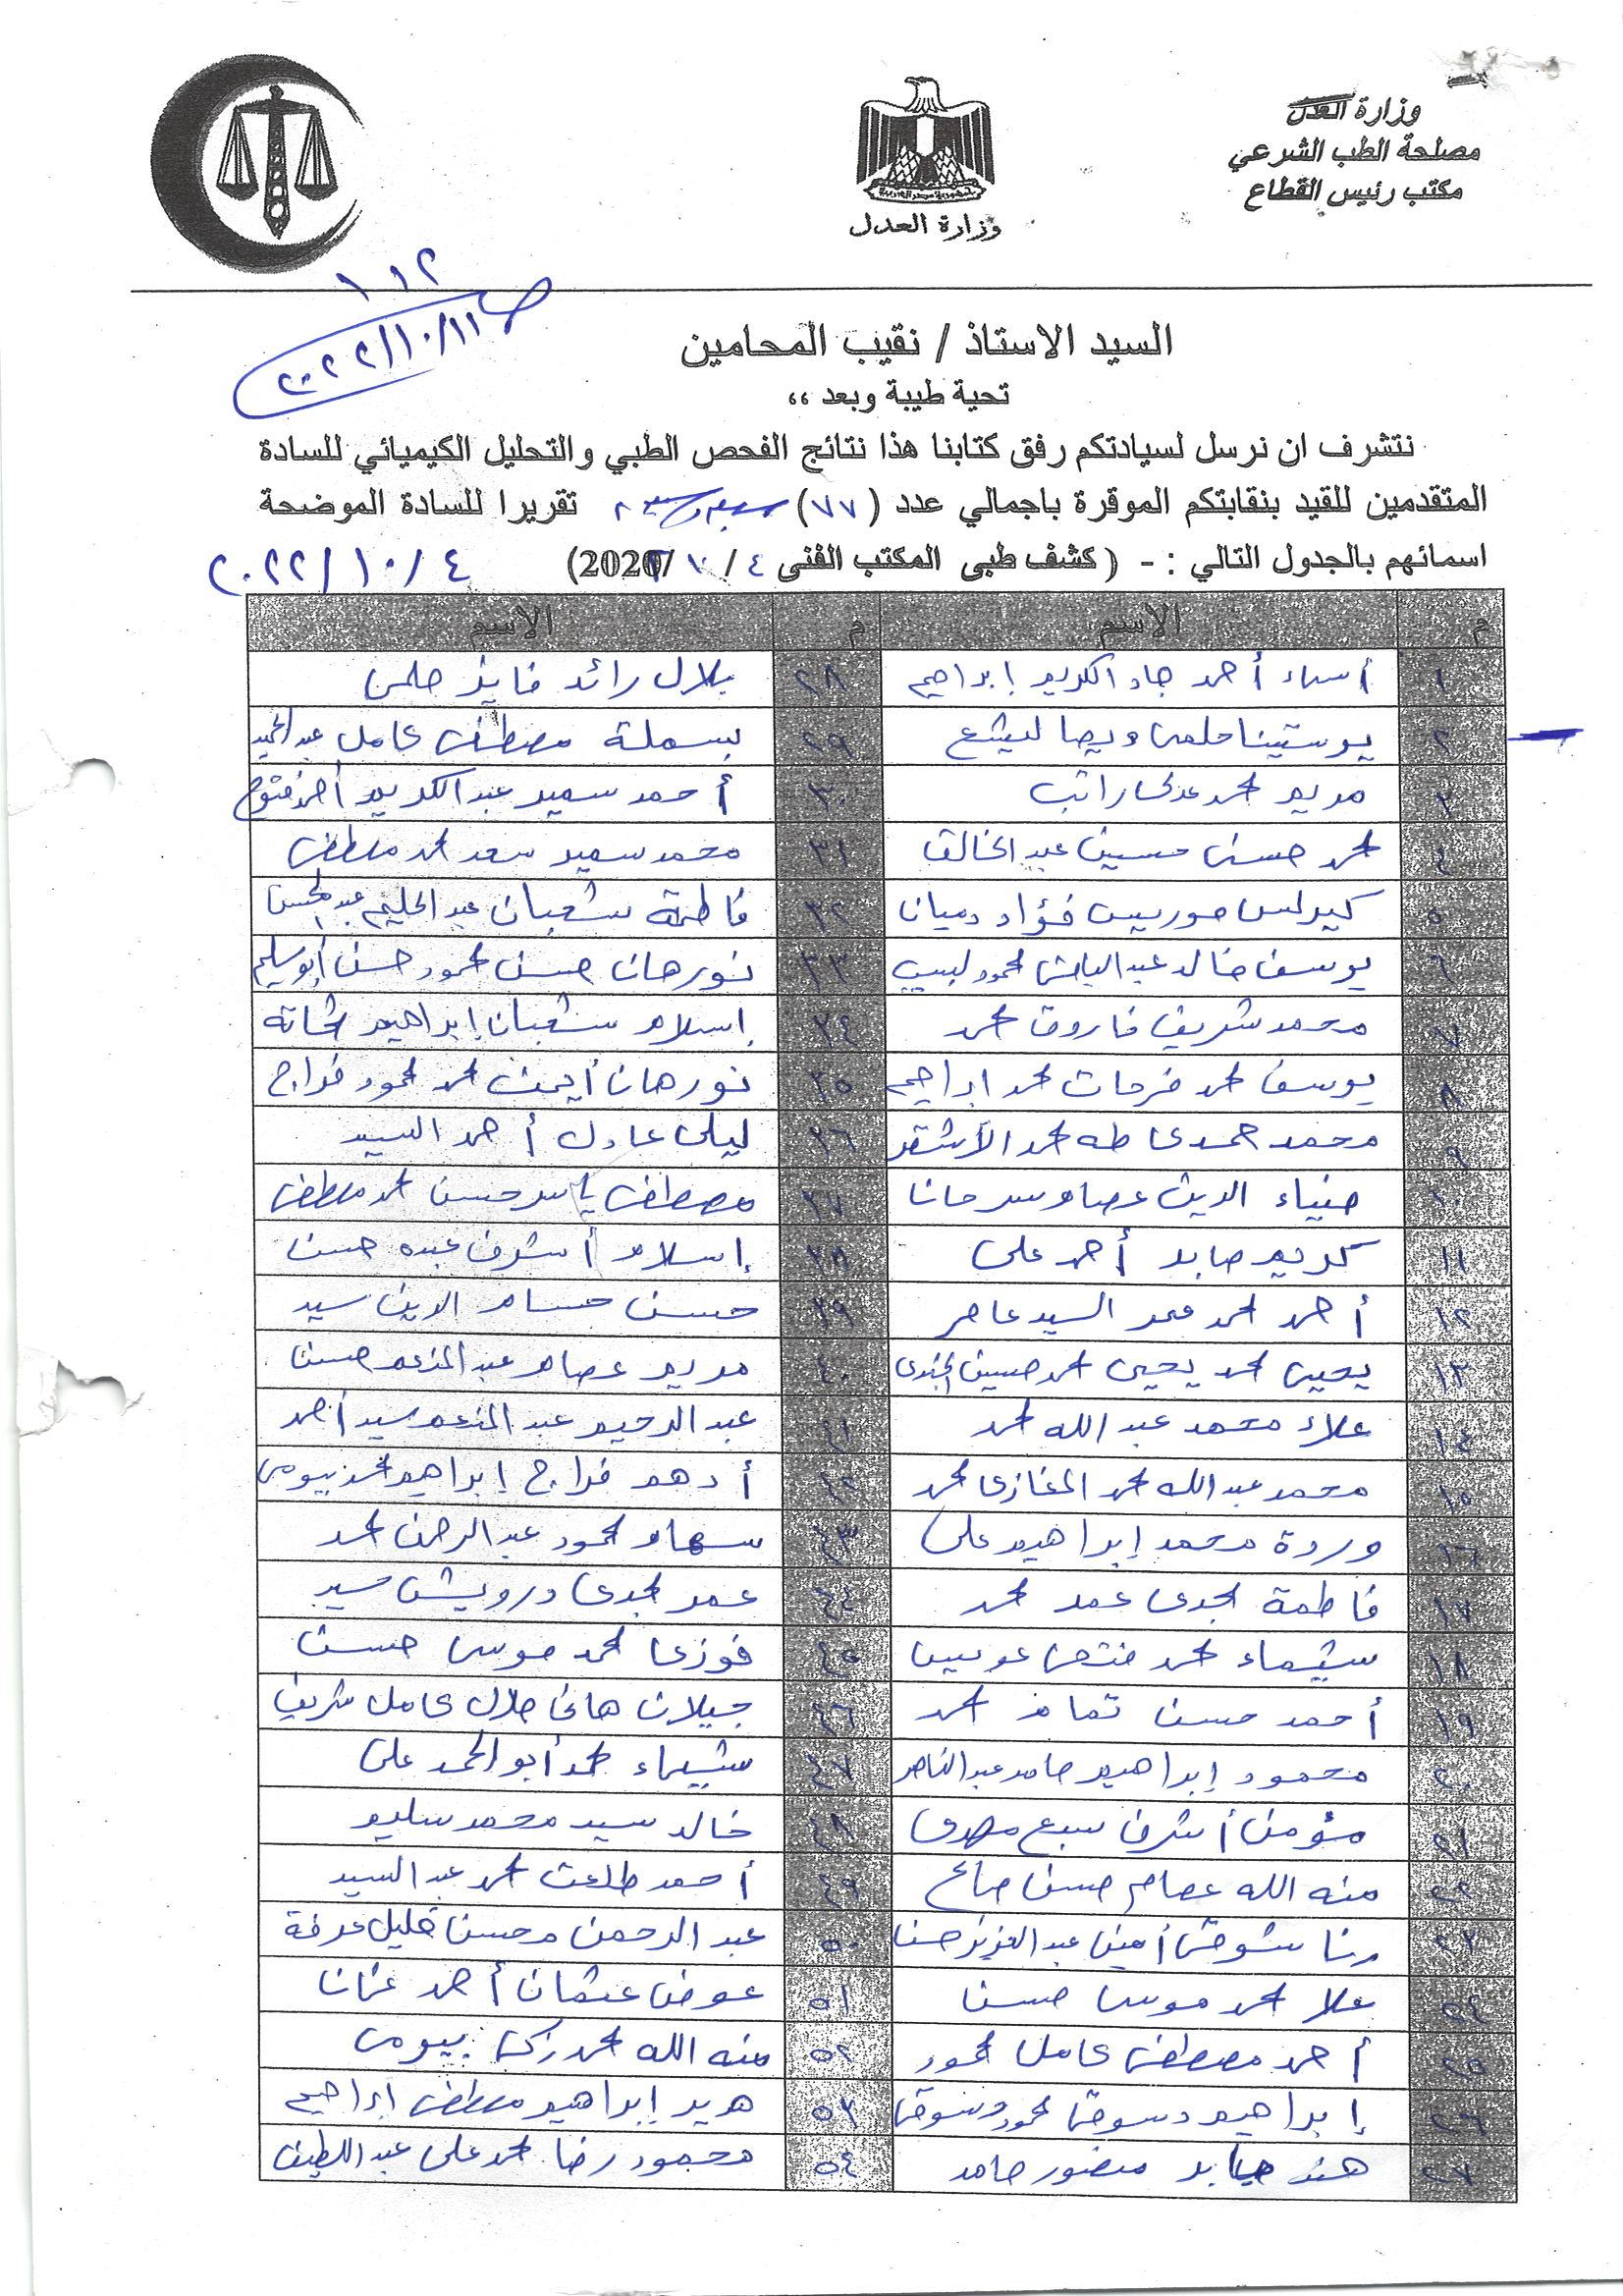 وزارة العدل
مصلحة الطب الشرعي
مكتب رئيس القطاع
وزارة العدل
١١٢
٢٠٢٢/١٠/١١
السيد الاستاذ / نقيب المحامين
تحية طيبة وبعد ،،
نتشرف ان نرسل لسيادتكم رفق كتابنا هذا نتائج الفحص الطبي والتحليل الكيميائي للسادة
المتقدمين للقيد بنقابتكم الموقرة باجمالي عدد (٧٧) تقريرا للسادة الموضحة
اسمائهم بالجدول التالي : - ( كشف طبى المكتب الفنى ٤ / /2020) ٢٠٢٢/١٠/٤
م الاسم م الاسم
١ أسماء أحمد جاد الكريم إبراهيم ٢٨ بلال رائد فايز حلمى
٢ يوستينا حلمى ويصا ليشع ٢٩ بسملة مصطفى كامل عبد الحميد
٣ مريم محمد عدلى راتب ٣٠ أحمد سمير عبد الكريم أحمد فتوح
٤ محمد حسن حسين عبد الخالق ٣١ محمد سمير سعد محمد مصطفى
٥ كيرلس موريس فؤاد دميان ٣٢ فاطمة شعبان عبد الحليم عبد المحسن
٦ يوسف خالد عبد الباسط محمود لبيب ٣٣ نورهان حسن محمود حسن أبو سليم
٧ محمد شريف فاروق محمد ٣٤ إسلام شعبان إبراهيم شحاتة
٨ يوسف محمد فرحات محمد ابراهيم ٣٥ نورهان أيمن محمد محمود فراج
٩ محمد حمدى طه محمد الأشقر ٣٦ ليلى عادل أحمد السيد
١٠ ضياء الدين عصام سرحان ٣٧ مصطفى ياسر حسن محمد مصطفى
١١ كريم صابر أحمد على ٣٨ إسلام أشرف عبده حسن
١٢ أحمد محمد محمد السيد عامر ٣٩ حسن حسام الدين سيد
١٣ يحيى محمد يحيى محمد حسين الجندى ٤٠ مريم عصام عبد المنعم حسن
١٤ علاء محمد عبد الله محمد ٤١ عبد الرحيم عبد المنعم سيد أحمد
١٥ محمد عبد الله محمد المغازى محمد ٤٢ أدهم فراج إبراهيم محمد بيومى
١٦ وردة محمد إبراهيم على ٤٣ سهام محمود عبد الرحمن محمد
١٧ فاطمة مجدى عمر محمد ٤٤ عمر مجدى درويش سيد
١٨ شيماء محمد فتحى عويس ٤٥ فوزى محمد موسى حسن
١٩ أحمد حسن تمام محمد ٤٦ جيلان هانى جلال كامل شريف
٢٠ محمود إبراهيم حامد عبد الناصر ٤٧ شيماء محمد أبو الحمد على
٢١ مؤمن أشرف سبع مهدى ٤٨ خالد سيد محمد سليم
٢٢ منه الله عصام حسن صالح ٤٩ أحمد طلعت محمد عبد السيد
٢٣ رنا شوقى أمين عبد العزيز حسن ٥٠ عبد الرحمن محسن خليل عرفة
٢٤ علا محمد موسى حسن ٥١ عوض عثمان أحمد عثمان
٢٥ أحمد مصطفى كامل محمود ٥٢ منه الله محمد زكى بيومى
٢٦ إبراهيم دسوقى محمود دسوقى ٥٣ هدير إبراهيم مصطفى إبراهيم
٢٧ هند صابر منصور حامد ٥٤ محمود رضا محمد على عبد اللطيف